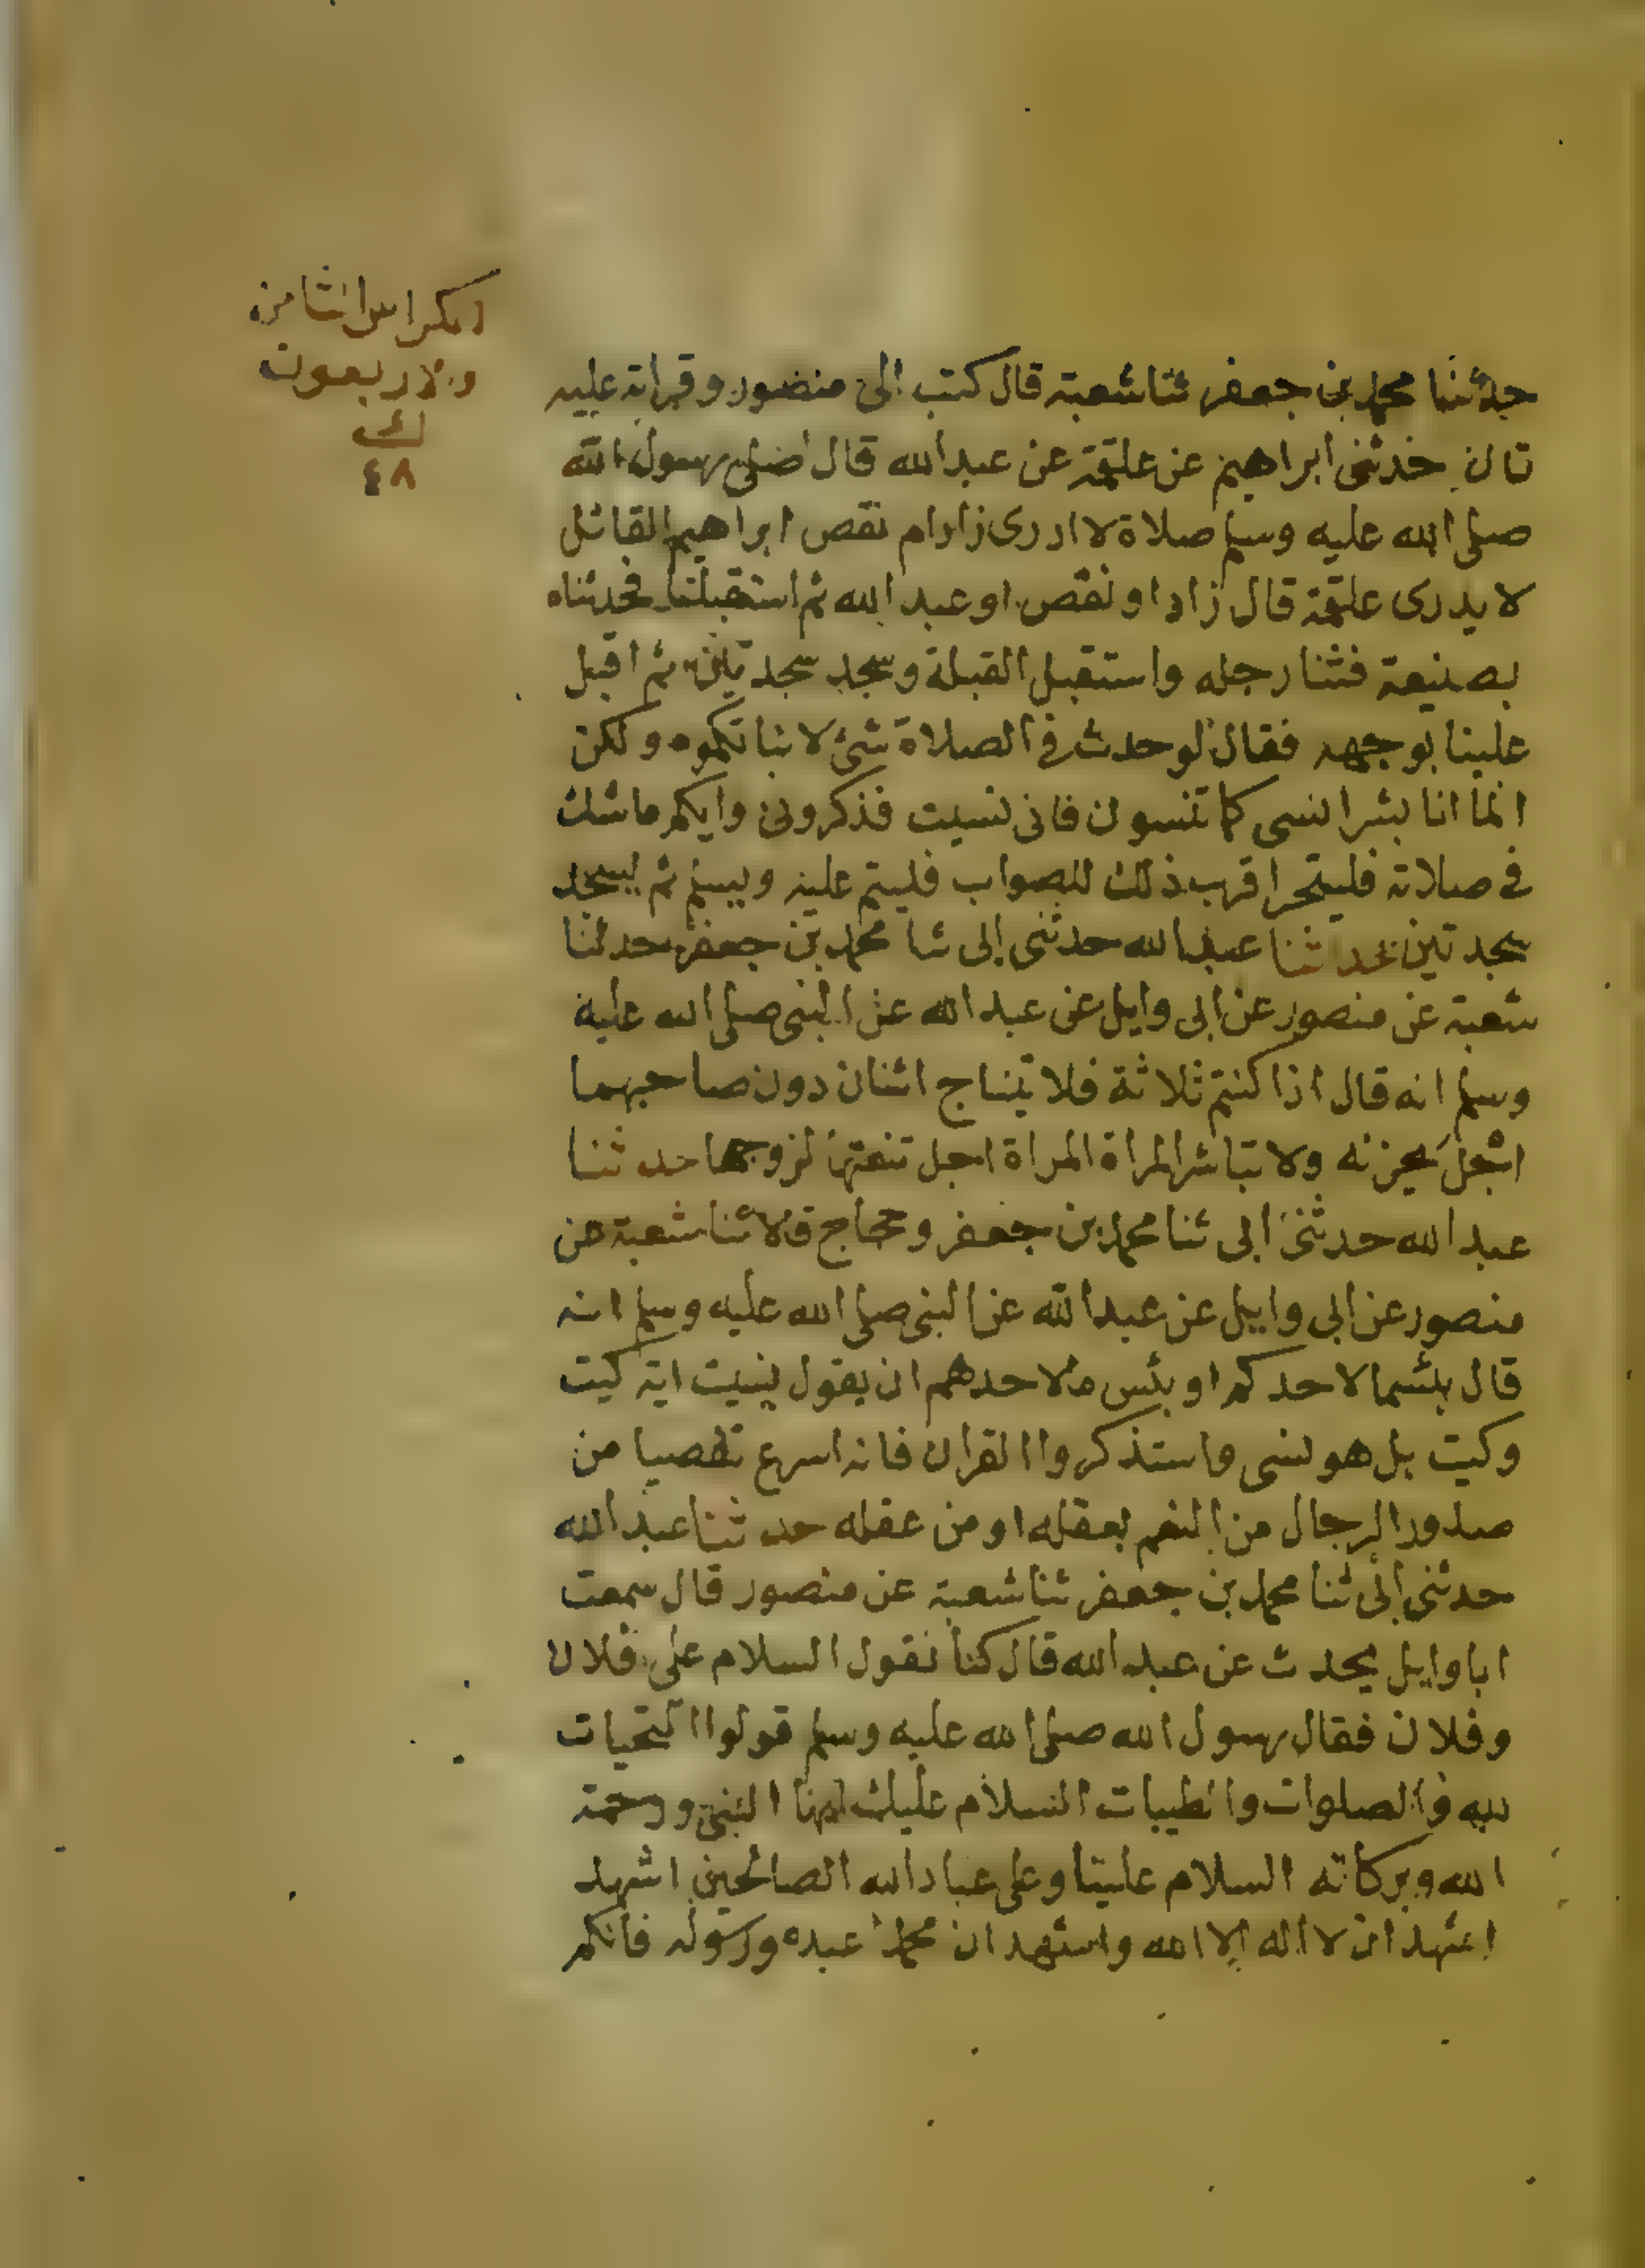 الكراس الثامن
والاربعون
ك
٤٨
حدثنا محمد بن جعفر ثنا شعبة قال كتب الى منصور وقراته عليه
قال حدثني ابراهيم عن علقمة عن عبد الله قال صلى رسول الله
صلى الله عليه وسلم صلاة لا ادرى زاد ام نقص ابراهيم القائل
لا يدرى علقمة قال زاد او نقص او عبد الله ثم استقبلنا فحدثناه
بصنيعة فثنا رجله واستقبل القبلة وسجد سجدتين ثم اقبل
علينا بوجهه فقال لو حدث في الصلاة شئ لانباتكموه ولكن
انما انا بشر انسى كما تنسون فانى نسيت فذكرونى وايكم ما شك
في صلاته فليتحر اقرب ذلك للصواب فليتم عليه ويسلم ثم يسجد
سجدتين حدثنا عبد الله حدثنى ابى ثنا محمد بن جعفر حدثنا
شعبة عن منصور عن ابى وايل عن عبد الله عن النبى صلى الله عليه
وسلم انه قال اذا كنتم ثلاثة فلا يتناج اثنان دون صاحبهما
اجل يحزنه ولا تباشر المراة المراة اجل تنعتها لزوجها حدثنا
عبد الله حدثنى ابى ثنا محمد بن جعفر وحجاج قالا ثنا شعبة عن
منصور عن ابى وايل عن عبد الله عن النبى صلى الله عليه وسلم انه
قال بئسما لاحدكم او بئس ما لاحدهم ان يقول نسيت اية كيت
وكيت بل هو نسى واستذكروا القران فانه اسرع تفصيا من
صدور الرجال من النعم بعقله او من عقله حدثنا عبد الله
حدثنى ابى ثنا محمد بن جعفر ثنا شعبة عن منصور قال سمعت
ابا وايل يحدث عن عبد الله قال كنا نقول السلام على فلان
وفلان فقال رسول الله صلى الله عليه وسلم قولوا التحيات
لله والصلوات والطيبات السلام عليك ايها النبى ورحمة
الله وبركاته السلام علينا وعلى عباد الله الصالحين اشهد
اشهد ان لا اله الا الله واشهد ان محمدا عبده ورسوله فانكم